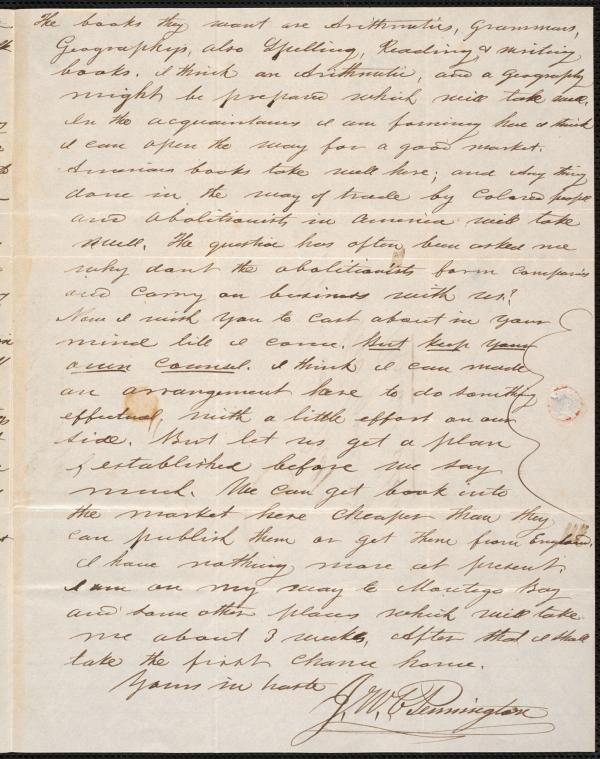 The books they want are Arithmetics, Grammars,
Geographys, also Spelling, Reading & writing
books. I think an Arithmetic, and a Geography
might be prepared which will take well.
In the acquaintances I am forming here I think
I can open the way for a good market.
American books take well here; and any thing
done in the way of trade by Colored people
and abolitionists in America will take
well. The question has often been asked me
why dont the abolitionists form companies
and carry on business with us?
Now I wish you to cast about in your
mind till I come. But keep your
own counsel. I think I can made
an arrangement here to do something
effectual, with a little effort on our
side. But let us get a plan
established before we say
much. We can get book into
the market here cheaper than they
can publish them or get them from England.
I have nothing more at present.
I am on my way to Montego Bay
and some other places which will take
me about 3 weeks, After that I shall
take the first chance home.
Yours in haste
J. W. C. Pennington